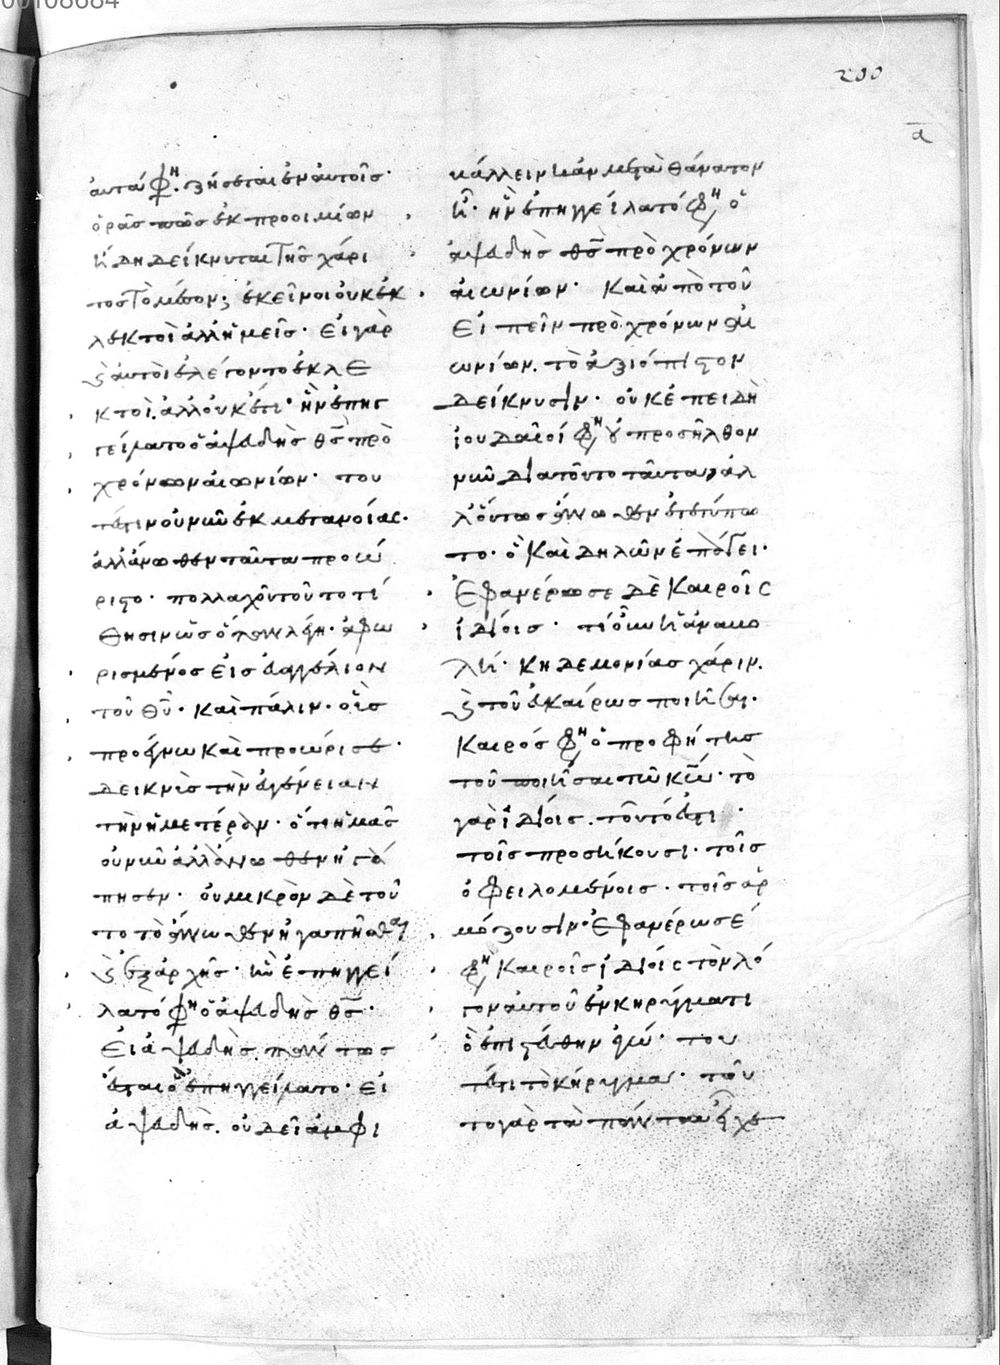 00108684
200
α
αὐτά φη. ζήσεται ἐν αὐτοῖς·
ὁρᾶς πῶς ἐκ προοιμίων
ἤδη δείκνυται τῆς χάρι
τος τὸ μέσον; ἐκεῖνοι οὐκ ἐκ
λεκτοὶ ἀλλ' ἡμεῖς· εἰ γὰρ
καὶ αὐτοὶ ἐλέγοντο ἐκλε
κτοὶ. ἀλλ' οὐκέτι· ἣν ἐπηγ
γείλατο ὁ ἀψευδὴς θς πρὸ
χρόνων αἰωνίων· του
τέστιν οὐ νῦν ἐκ μετανοίας·
ἀλλ' ἄνωθεν ταῦτα προώ
ριστο· πολλαχοῦ τοῦτο τί
θησιν ὡς ὅταν λέγη· ἀφω
ρισμένος εἰς εὐαγγέλιον
τοῦ θυ· καὶ πάλιν· οὓς
προέγνω καὶ προώρισε·
δεικνὺς τὴν εὐγένειαν
τὴν ἡμετέραν· ὅτι ἡμᾶς
οὐ νῦν ἀλλ' ἄνωθεν ἠγά
πησεν· οὐ μικρὸν δὲ τοῦ
το τὸ ἄνωθεν ἠγαπῆσθαι
καὶ ἐξαρχῆς· ἣν ἐπηγγεί
λατό φη ὁ ἀψευδὴς θς·
εἰ ἀψευδὴς. πάντως
ἔσται ὃ ἐπηγγείλατο· εἰ
ἀψευδὴς. οὐ δεῖ ἀμφι
βάλλειν κἂν μετὰ θάνατον
ᾖ· ἣν ἐπηγγείλατό φη ὁ
ἀψευδὴς θς πρὸ χρόνων
αἰωνίων· καὶ ἀπὸ τοῦ
εἰπεῖν πρὸ χρόνων αἰ
ωνίων. τὸ ἀξιόπιστον
δείκνυσιν· οὐκ ἐπειδὴ
ἰουδαῖοί φη οὐ προσῆλθον
νῦν διατοῦτο ταῦτα, ἀλ
λ' οὕτως ἄνωθεν ἐτετύπω
το· ὃ καὶ δηλῶν ἐπάγει·
ἐφανέρωσε δὲ καιροῖς
ἰδίοις· τί οὖν ἡ ἀναβο
λή· κηδεμονίας χάριν.
καὶ τοῦ εὐκαίρως ποιῆσαι·
καιρός φη ὁ προφήτης
τοῦ ποιῆσαι τῶ κω· τὸ
γὰρ ἰδίοις. τοῦτό ἐστι
τοῖς προσήκουσι· τοῖς
ὀφειλομένοις· τοῖς ἁρ
μόζουσιν· ἐφανέρωσέ
φη καιροῖς ἰδίοις τὸν λό
γον αὐτοῦ ἐν κηρύγματι
ὃ ἐπιστεύθην ἐγώ· του
τέστι τὸ κήρυγμα· τοῦ
το γὰρ τὰ πάντα εἶχε